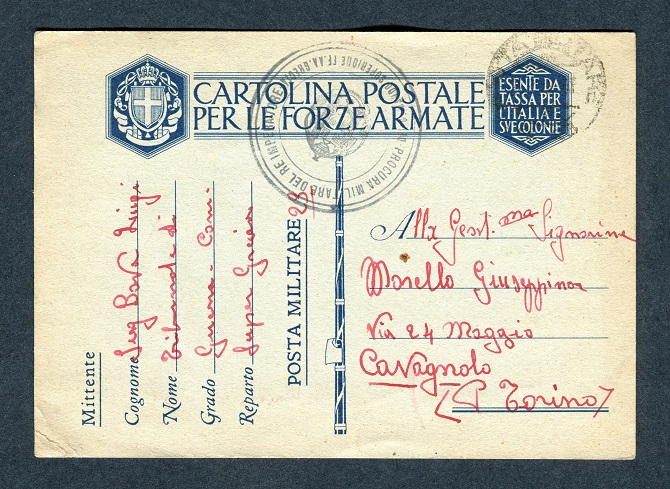 CARTOLINA POSTALE
PER LE FORZE ARMATE
ESENTE DA
TASSA PER
L'ITALIA E
SVE COLONIE
PROCURA MILITARE DEL RE IMPERATORE
SUPERIORE FF.AA.
Mittente
Cognome Luigi
Nome Tribunale di
Grado Guerra
Reparto Super
POSTA MILITARE 23
Alla Gent.ma Signorina
Morello Giuseppina
Via 24 Maggio
Cavagnolo
(P Torino)